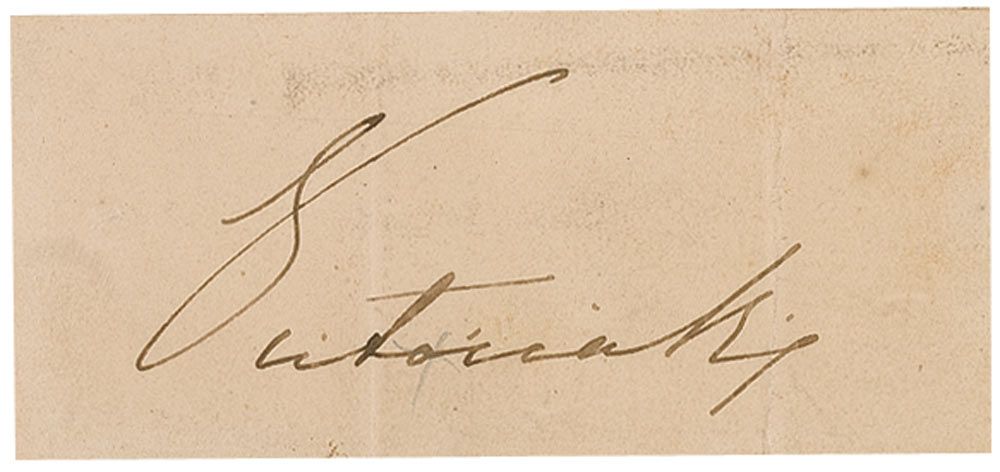 Victoria RI